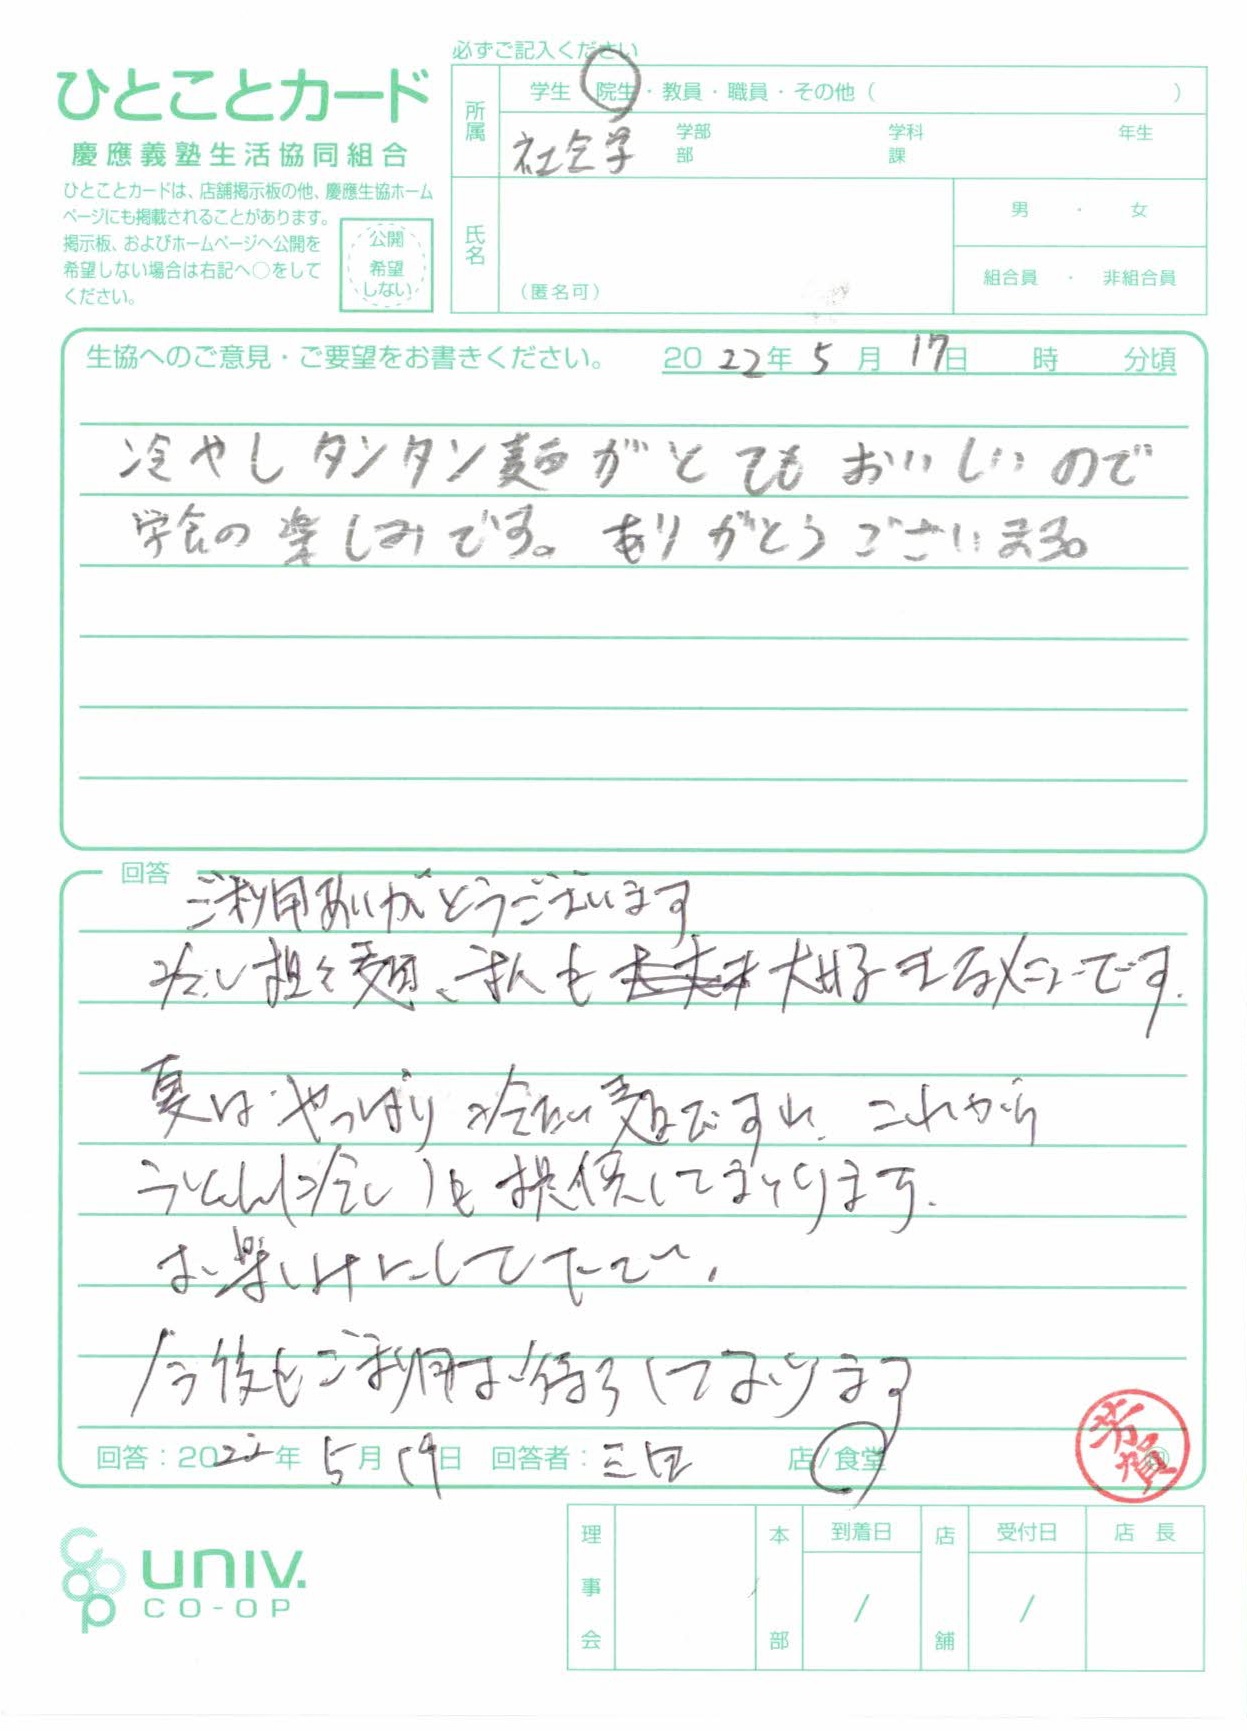 必ずご記入ください
ひとことカード
慶應義塾生活協同組合
ひとことカードは、店舗掲示板の他、慶應生協ホーム
ページにも掲載されることがあります。
掲示板、およびホームページへ公開を
希望しない場合は右記へ○をして
ください。
公開
希望
しない
所属
学生・院生・教員・職員・その他（　　　）
社会学 学部 学科 年生
部 課
氏名
（匿名可）
男 ・ 女
組合員 ・ 非組合員
生協へのご意見・ご要望をお書きください。 2022年5月17日 時 分頃
冷やしタンタン麺がとてもおいしいので
学食の楽しみです。ありがとうございまする。
回答
ご利用ありがとうございます
冷し担々麺、私も 大好きなメニューです.
夏は、やっぱり冷たい麺ですね. これから
うどん(冷し)も提供してまいります.
お楽しみにしてて下さい.
今後もご利用お待ちしております
回答：2022年5月19日 回答者：三田 店/食堂
芳賀
印
UNIV.
CO-OP
理事会
本部
到着日
/
店舗
受付日
/
店長